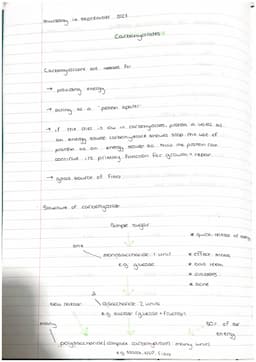 Carbohydrates
Carbohydrates are needed for
→ providing energy
→ acting as a 'protein sparer'
→ if the diet is low in carbohydrates, protein is used as
an energy source. carbohydrate allows stop the use of
protein as an energy source so that the protein can
continue its primary function for growth + repair.
→ good source of fibre
Structure of carbohydrate
Simple sugar
* quick release of energy
one
monosaccharide: 1 unit
e.g. glucose
* effect mood
* bad teeth
* diabetes
* acne
slow release
disaccharide: 2 units
e.g. sucrose (glucose + fructose)
many
50% of our
energy
polysaccharide (complex carbohydrates): many units
e.g. starch, NSP, fibre